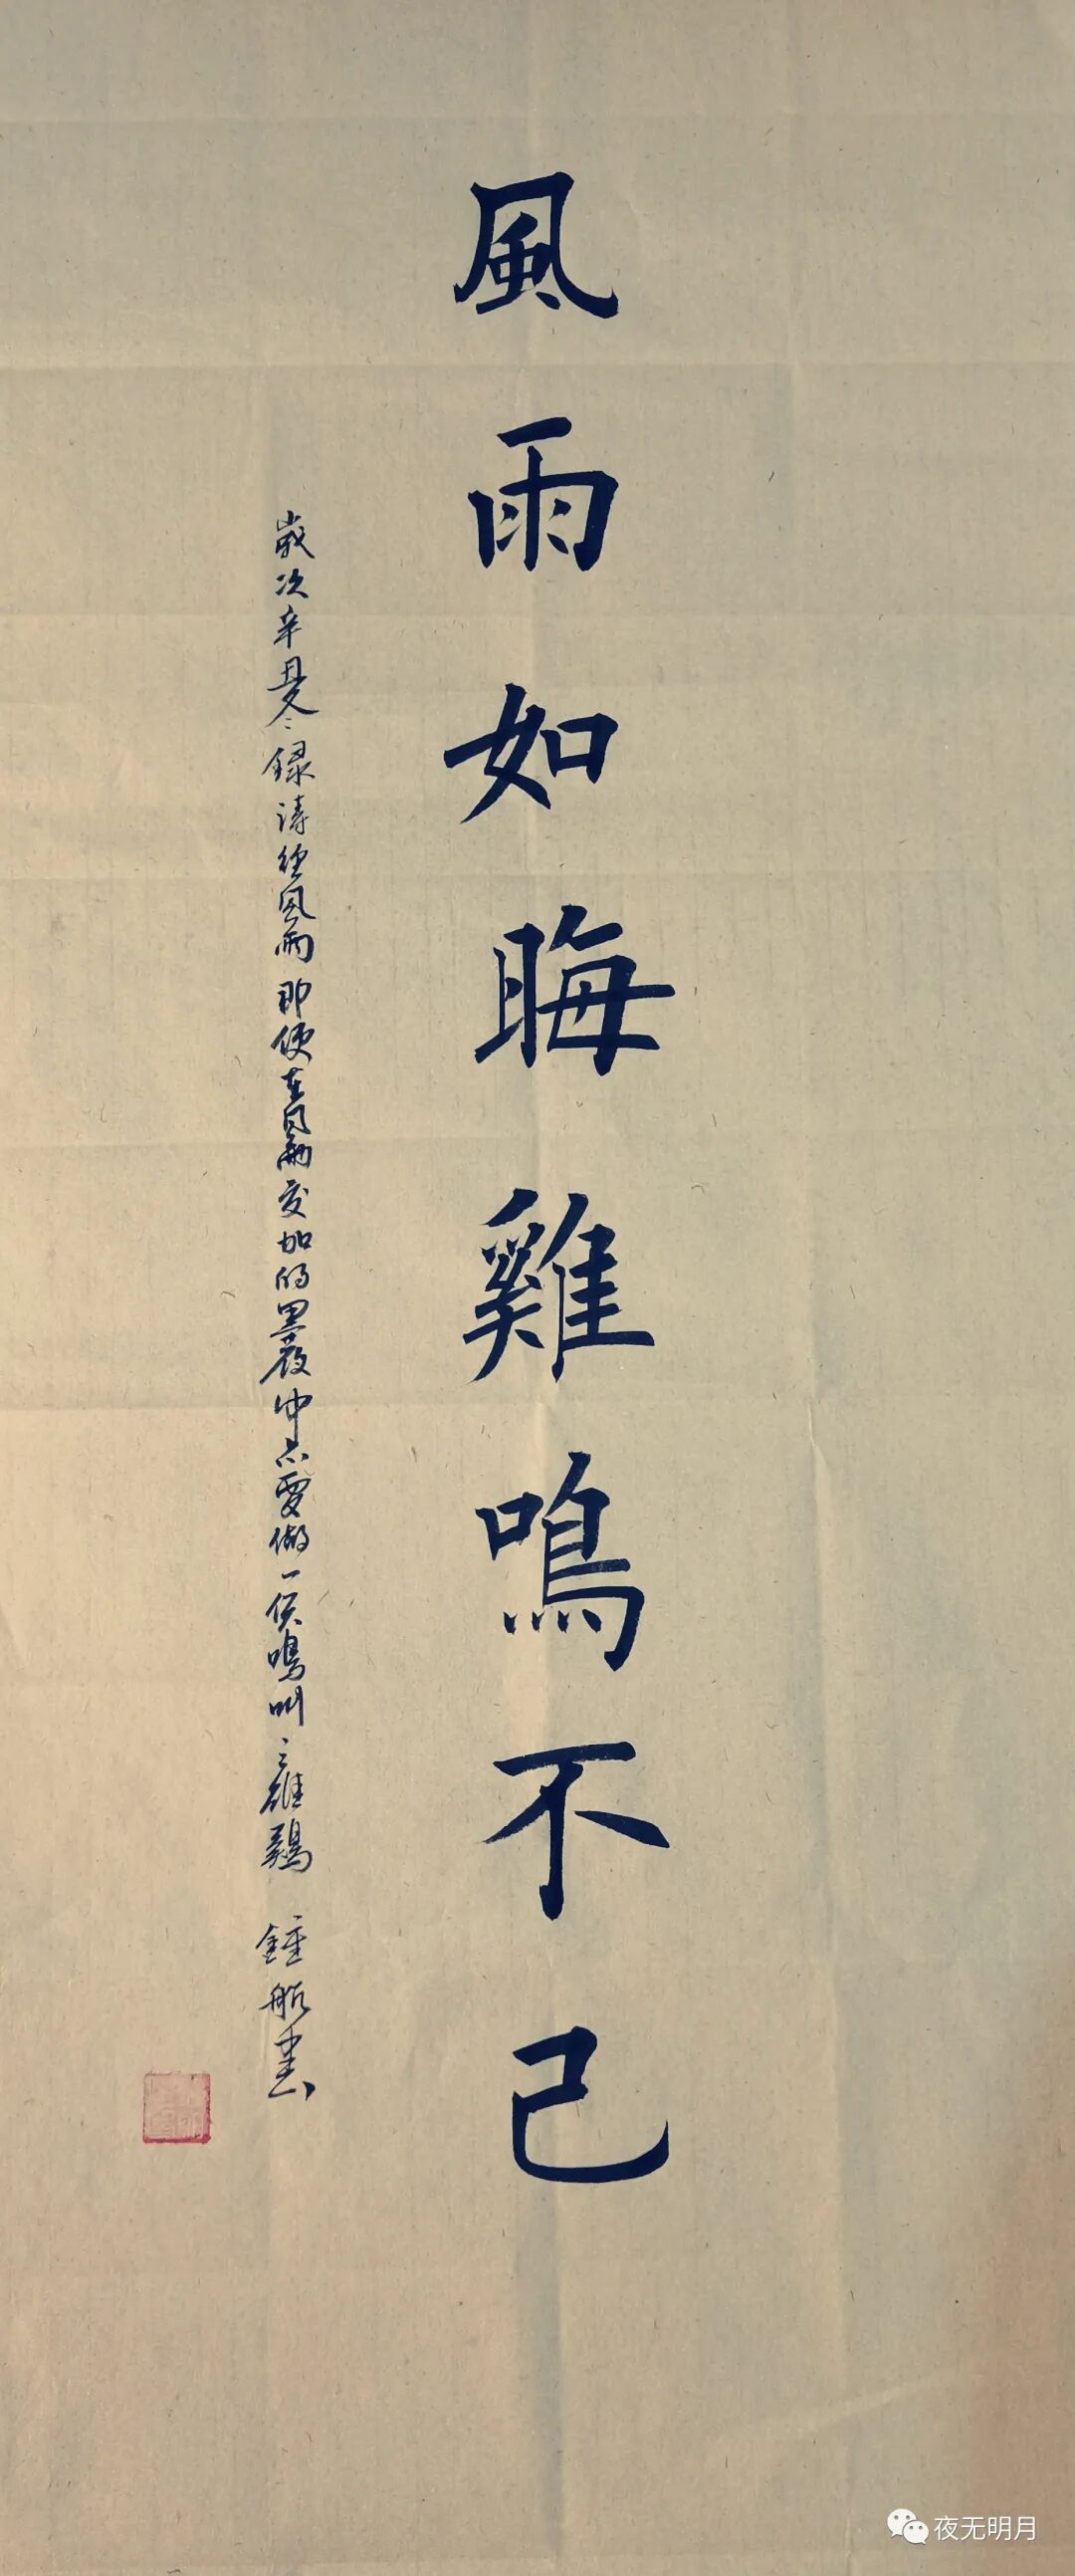 風雨如晦雞鳴不已
歲次辛丑冬錄詩經風雨即便在風雨交加的黑夜中亦要做一侯鳴叫之雄鷄 鍾舩書
夜无明月